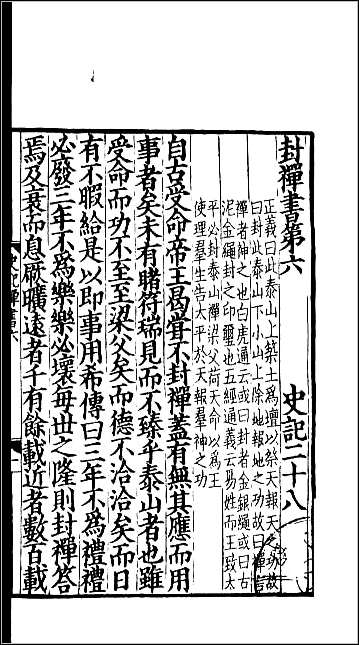 封禪書第六 史記二十八
正義曰此泰山上築土為壇以祭天報天之功故
曰封此泰山下小山上除地報地之功故曰禪言
禪者神之也白虎通云或曰封者金銀繩或曰石
泥金繩封之印璽也五經通義云易姓而王致太
平必封泰山禪梁父荷天命以為王
使理羣生告太平於天報羣神之功
自古受命帝王曷嘗不封禪蓋有無其應而用
事者矣未有睹符瑞見而不臻乎泰山者也雖
受命而功不至至梁父矣而德不洽洽矣而日
有不暇給是以即事用希傳曰三年不為禮禮
必廢三年不為樂樂必壞每世之隆則封禪答
焉及衰而息厥曠遠者千有餘載近者數百載